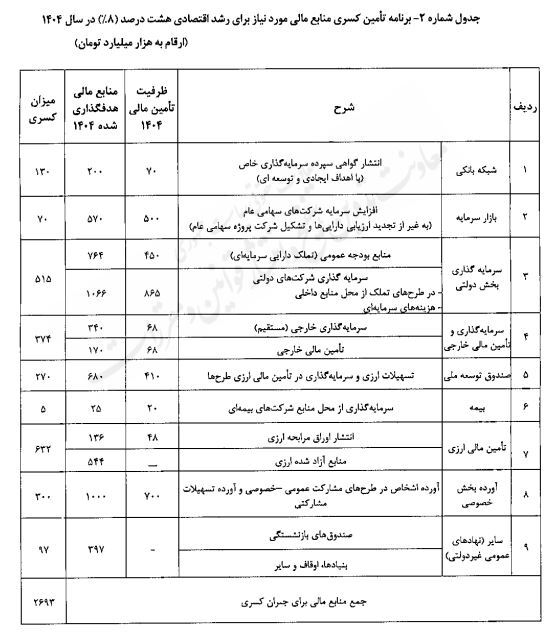 جدول شماره ۲- برنامه تأمین کسری منابع مالی مورد نیاز برای رشد اقتصادی هشت درصد (۸٪) در سال ۱۴۰۴
(ارقام به هزار میلیارد تومان)
ردیف شرح ظرفیت تأمین مالی ۱۴۰۴ منابع مالی هدفگذاری شده ۱۴۰۴ میزان کسری
۱ شبکه بانکی انتشار گواهی سپرده سرمایه‌گذاری خاص ۷۰ ۲۰۰ ۱۳۰
(با اهداف ایجادی و توسعه ای)
۲ بازار سرمایه افزایش سرمایه شرکت‌های سهامی عام ۵۰۰ ۵۷۰ ۷۰
(به غیر از تجدید ارزیابی دارایی‌ها و تشکیل شرکت پروژه سهامی عام)
۳ سرمایه گذاری بخش دولتی منابع بودجه عمومی (تملک دارایی سرمایه‌ای) ۴۵۰ ۷۶۴ ۵۱۵
سرمایه گذاری شرکت‌های دولتی ۸۶۵ ۱۰۶۶
- در طرح‌های تملک از محل منابع داخلی
- هزینه‌های سرمایه‌ای
۴ سرمایه‌گذاری و تأمین مالی خارجی سرمایه‌گذاری خارجی (مستقیم) ۶۸ ۳۴۰ ۳۷۴
تأمین مالی خارجی ۶۸ ۱۷۰
۵ صندوق توسعه ملی تسهیلات ارزی و سرمایه‌گذاری در تأمین مالی ارزی طرح‌ها ۴۱۰ ۶۸۰ ۲۷۰
۶ بیمه سرمایه‌گذاری از محل منابع شرکت‌های بیمه‌ای ۲۰ ۲۵ ۵
۷ تأمین مالی ارزی انتشار اوراق مرابحه ارزی ۴۸ ۱۳۶ ۶۳۲
منابع آزاد شده ارزی — ۵۴۴
۸ آورده بخش خصوصی آورده اشخاص در طرح‌های مشارکت عمومی –خصوصی و آورده تسهیلات مشارکتی ۷۰۰ ۱۰۰۰ ۳۰۰
۹ سایر (نهادهای عمومی غیردولتی) صندوق‌های بازنشستگی - ۳۹۷ ۹۷
بنیادها، اوقاف و سایر
جمع منابع مالی برای جبران کسری ۲۶۹۳